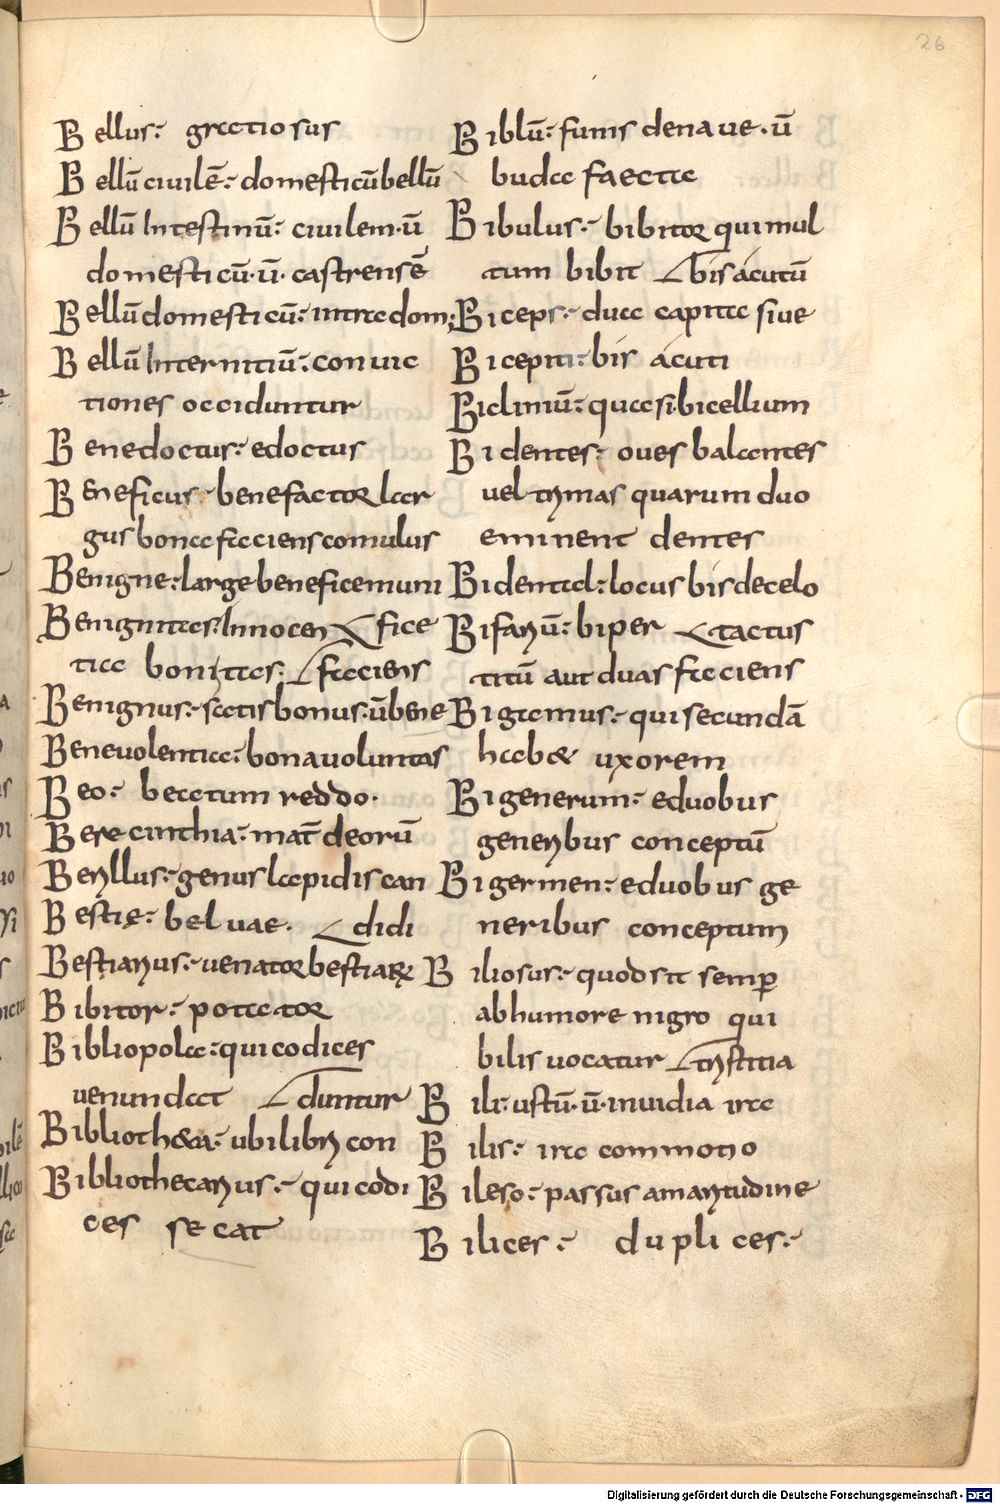 26
Bellus: gratiosus
Bellū ciuilē: domesticū bellū
Bellū Intestinū: ciuilem·ū
domesticū·ū·castrensē
Bellū domesticū: intra dom;
Bellū Internitiū: conuic
tiones occiduntur
Benedoctus: edoctus
Beneficus: benefactor lar
gus bona faciens comulus
Benigne: large benefice muni
Benignitas: Innocen fice
tia bonitas: faciens
Benignus: satis bonus·ū bene
Beneuolentia: bona uoluntas
Beo: beatum reddo·
Berecinthia: mat̄ deorū
Beryllus: genus lapidis can
Bestię: beluae· didi
Bestiarius: uenator bestiarꝝ
Bibitor: potator
Bibliopola: qui codices
uenundat duntur
Biblioth&a: ubi libri con
Bibliothecarius: qui codi
ces secat
Biblū: funis de naue·ū
buda facta
Bibulus: bibitor qui mul
tum bibit bis acutū
Biceps: dua capita siue
Bicipiti: bis acuti
Bicliniū: quasi·bicellium
Bidentes: oues balantes
uel trimas quarum duo
eminent dentes
Bidental: locus bis de celo
Bifariū: biper tactus
titū aut duas faciens
Bigamus: qui secundā
hab& uxorem
Bigenerum: e duobus
generibus conceptū
Bigermen: e duobus ge
neribus conceptum
Biliosus: quod sit semꝑ
ab humore nigro qui
bilis uocatur tristitia
Bili: ustū·ū·inuidia ira
Bilis: ira commotio
Bileso: passus amaritudine
Bilices: duplices:
Digitalisierung gefördert durch die Deutsche Forschungsgemeinschaft - DFG